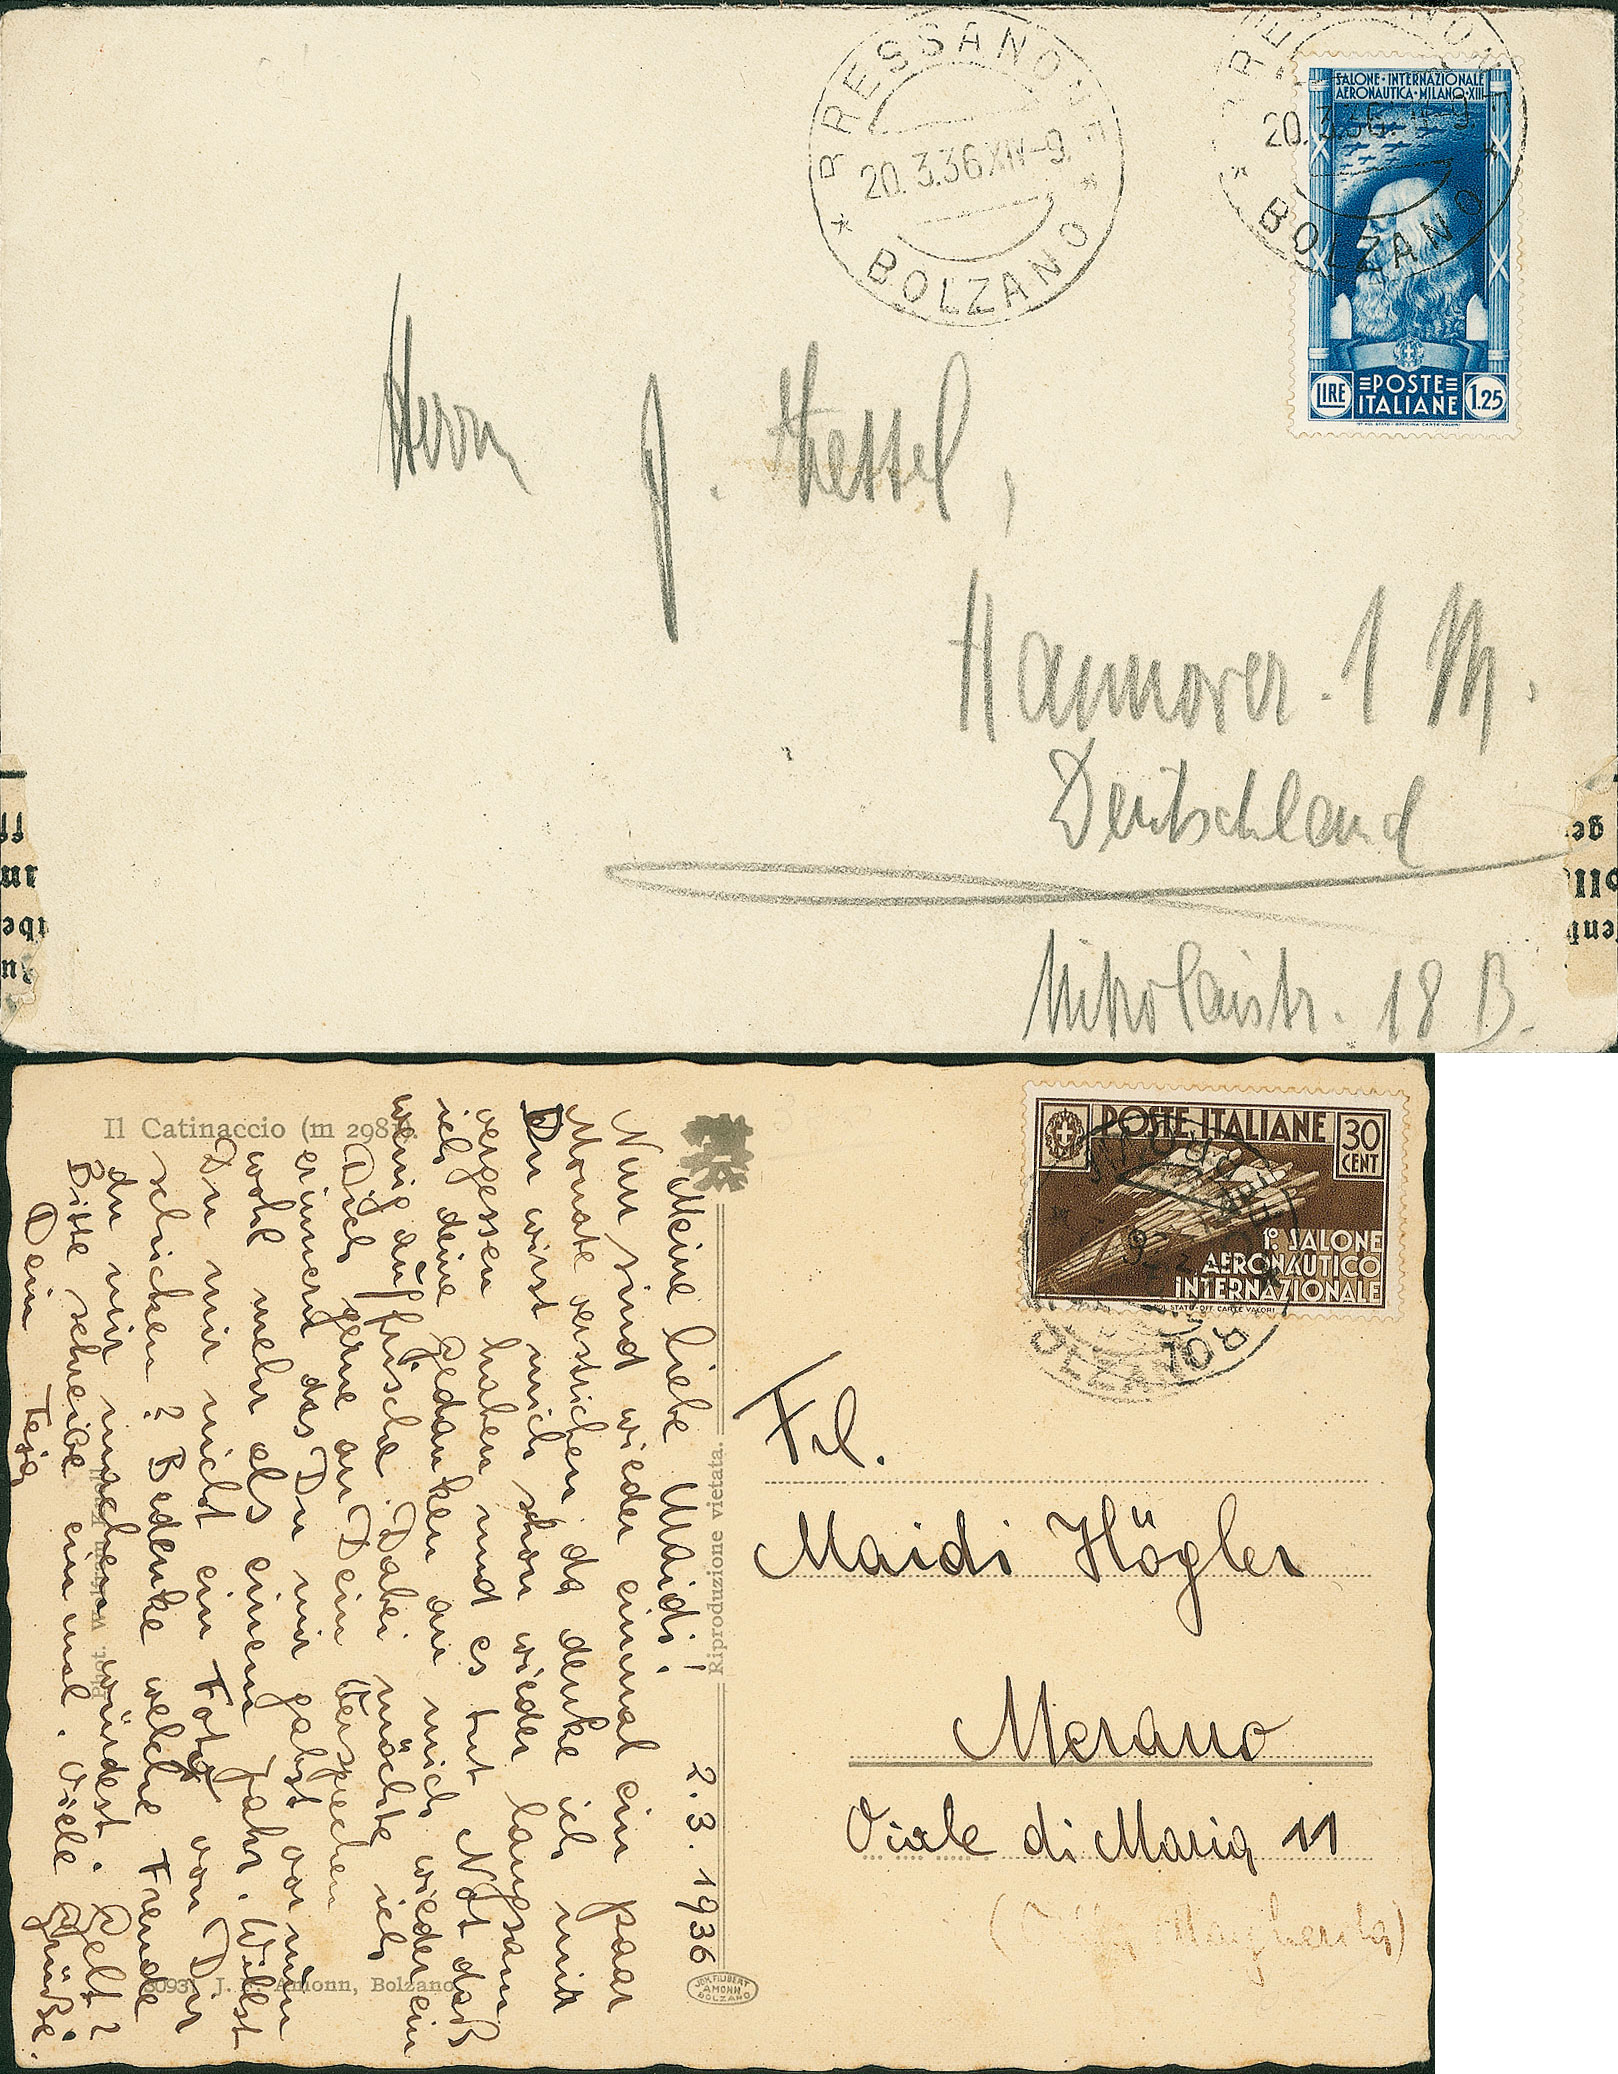 BRESSANONE
20.3.36 XIV-9.
* BOLZANO *
BRESSANONE
20.3.36
* BOLZANO *
SALONE·INTERNAZIONALE
AERONAUTICA·MILANO·XIII
LIRE
POSTE
ITALIANE
1.25
Herrn J. Kessel,
Hannover. 1 M.
Deutschland
Nikolaistr. 18 B.
Il Catinaccio (m 2981).
POSTE ITALIANE
30
CENT
1º SALONE
AERONAUTICO
INTERNAZIONALE
BOLZANO
2. 3. 1936
Meine liebe Maidi!
Nun sind wieder einmal ein paar
Monate verstrichen da denke ich mir
Du wirst mich schon wieder langsam
vergessen haben und es tut Not daß
ich deine Gedanken an mich wieder ein
wenig auffrische. Dabei möchte ich
Dich gerne an Dein Versprechen
erinnern das Du mir gabst vor nun
wohl mehr als einem Jahr. Willst
Du mir nicht ein Foto von Dir
schicken? Bedenke welche Freude
du mir machen würdest. Gelt?
Bitte schreibe einmal. Viele Grüße.
Dein
Riproduzione vietata.
JOH. FILIBERT
AMONN
BOLZANO
Amonn, Bolzano
Frl.
Maidi Högler
Merano
Viale di Maria 11